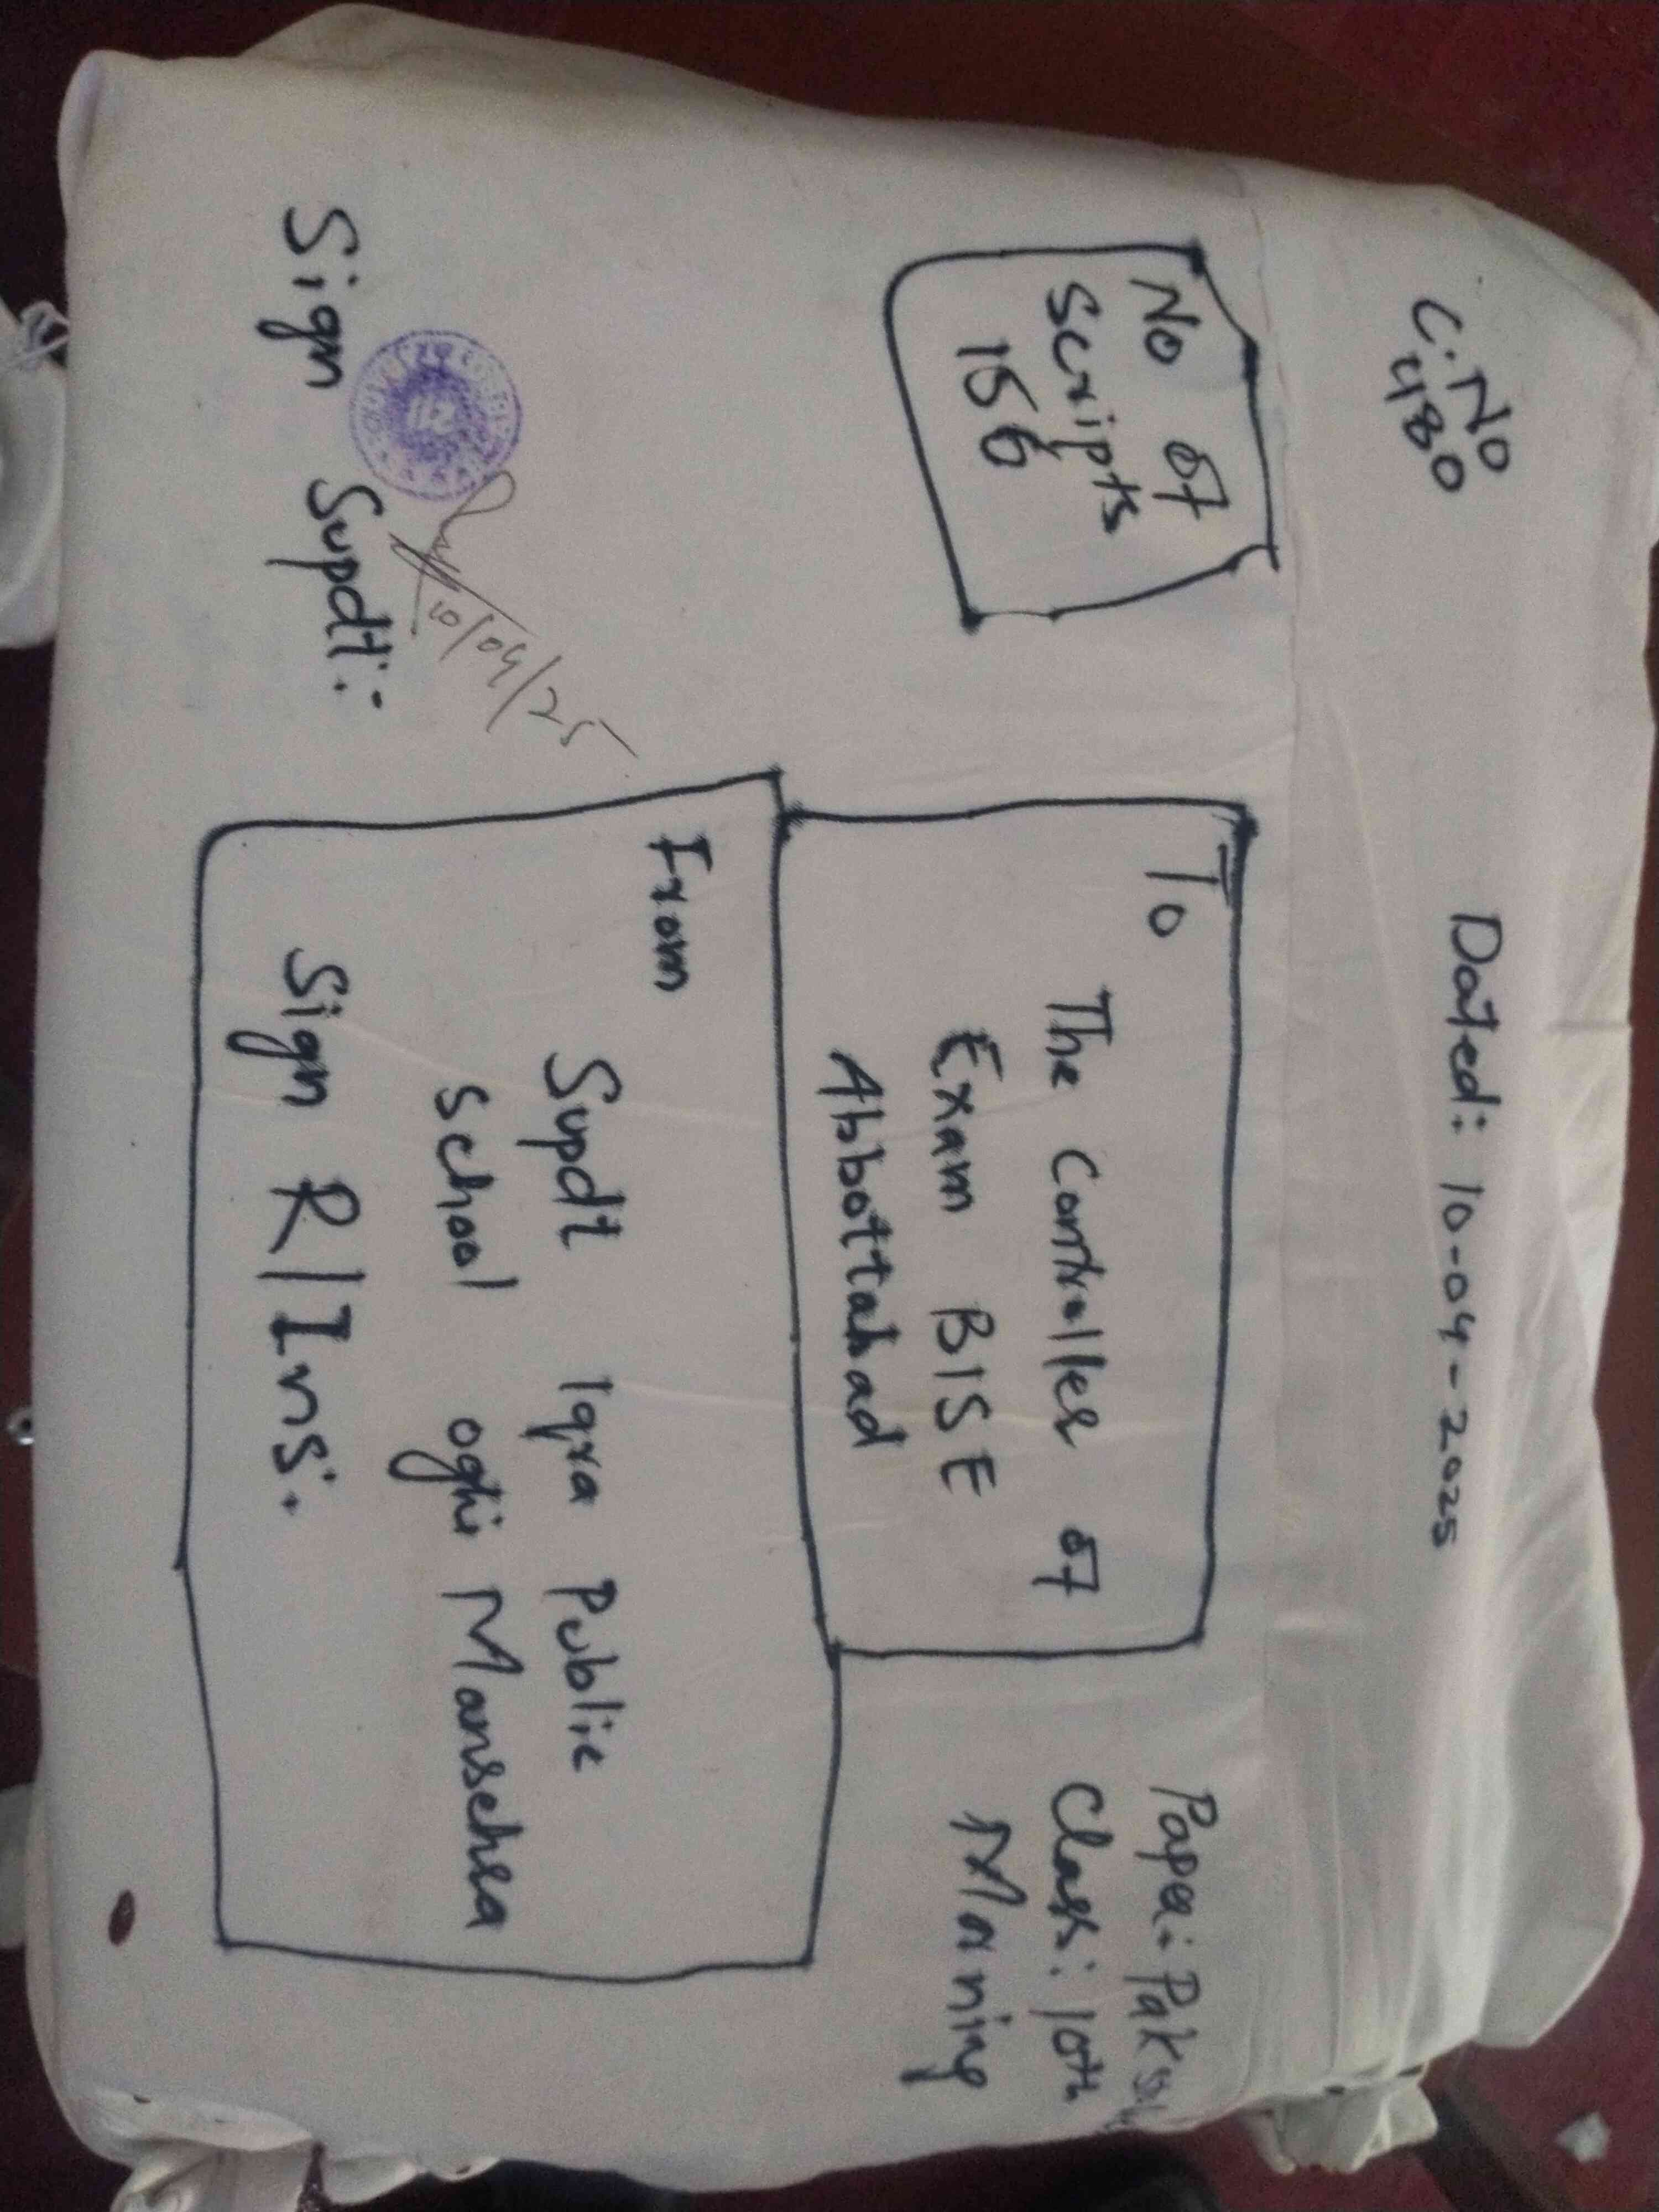 C.No
480
Dated: 10-04-2025
No of
Scripts
156
To
The Controller of
Exam BISE
Abbottabad
Paper: Pak
Class: 10th
Morning
From
Supdt Iqra Public
School oghi Mansehra
Sign R/Ins:
10/04/25
Sign Supdt: